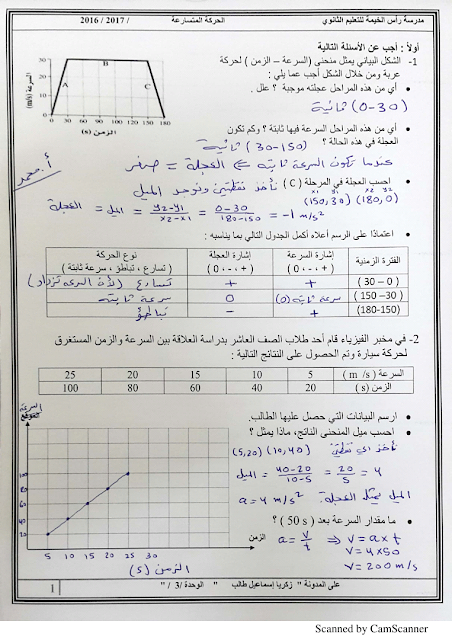 مدرسة رأس الخيمة للتعليم الثانوي
الحركة المتسارعة
2016 / 2017 /
أولاً : أجب عن الأسئلة التالية
1- الشكل البياني يمثل منحنى (السرعة – الزمن) لحركة
عربة ومن خلال الشكل أجب عما يلي :
أي من هذه المراحل عجلته موجبة ؟ علل .
(0-30) ثانية
السرعة (m/s)
30
20
10
0
A
B
C
0 30 60 90 120 150 180
الزمن (s)
أي من هذه المراحل السرعة فيها ثابتة ؟ وكم تكون
العجلة في هذه الحالة ؟ (30-150) ثانية
عندما تكون السرعة ثابتة ⇐ العجلة = صفر
احسب العجلة في المرحلة ( C ) نأخذ نقطتين ونوجد الميل
x1 y1 x2 y2
(150,30) (180,0)
العجلة = الميل = y2-y1 / x2-x1 = 0-30 / 180-150 = -1 m/s²
اعتمادًا على الرسم أعلاه أكمل الجدول التالي بما يناسبه :
الفترة الزمنية
إشارة السرعة
( + ، 0 ، - )
إشارة العجلة
( + ، 0 ، - )
نوع الحركة
( تسارع ، تباطؤ ، سرعة ثابتة )
(0 – 30) + + تسارع (لأن السرعة تزداد)
(30– 150) سرعة ثابتة (0) 0 سرعة ثابتة
(180-150) + - تباطؤ
2- في مخبر الفيزياء قام أحد طلاب الصف العاشر بدراسة العلاقة بين السرعة والزمن المستغرق
لحركة سيارة وتم الحصول على النتائج التالية :
السرعة ( m/s ) 5 10 15 20 25
الزمن (s) 20 40 60 80 100
ارسم البيانات التي حصل عليها الطالب.
احسب ميل المنحنى الناتج، ماذا يمثل ؟
نأخذ أي نقطتين (5,20) (10,40)
الميل = 40-20 / 10-5 = 20 / 5 = 4
الميل يمثل العجلة. a = 4 m/s²
ما مقدار السرعة بعد ( 50 s ) ؟
a = v/t ⇒ v = a x t
v = 4x50
v = 200 m/s
السرعة
100
80
60
40
20
5 10 15 20 25 30
الزمن
الزمن (s)
على المدونة " زكريا إسماعيل طالب " الوحدة /3 / "
1
Scanned by CamScanner